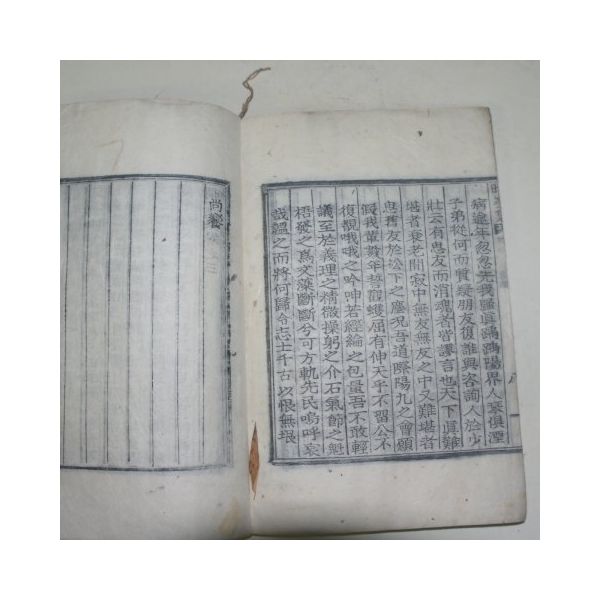 病逾年忽忽先我騷眞鷗鷗陽界人琴俱湮
子弟從何而質疑朋友復誰與咨詢人於少
壯云有患友而消魂者皆謬言也天下眞難
堪者衰老閒寂中無友無友之中又難堪者
患舊友於松下之塵況吾道際陽九之會願
假我輩數年暫觀蠖屈有伸天乎不習公不
復觀哦哦之吟呻若經綸之包量吾不敢輕
議至於義理之精微操躬之介石氣節之魁
梧發之爲文藻斷斷兮可方軌先民嗚呼哀
哉韞之而將何歸令志士千古以恨無垠
尚饗